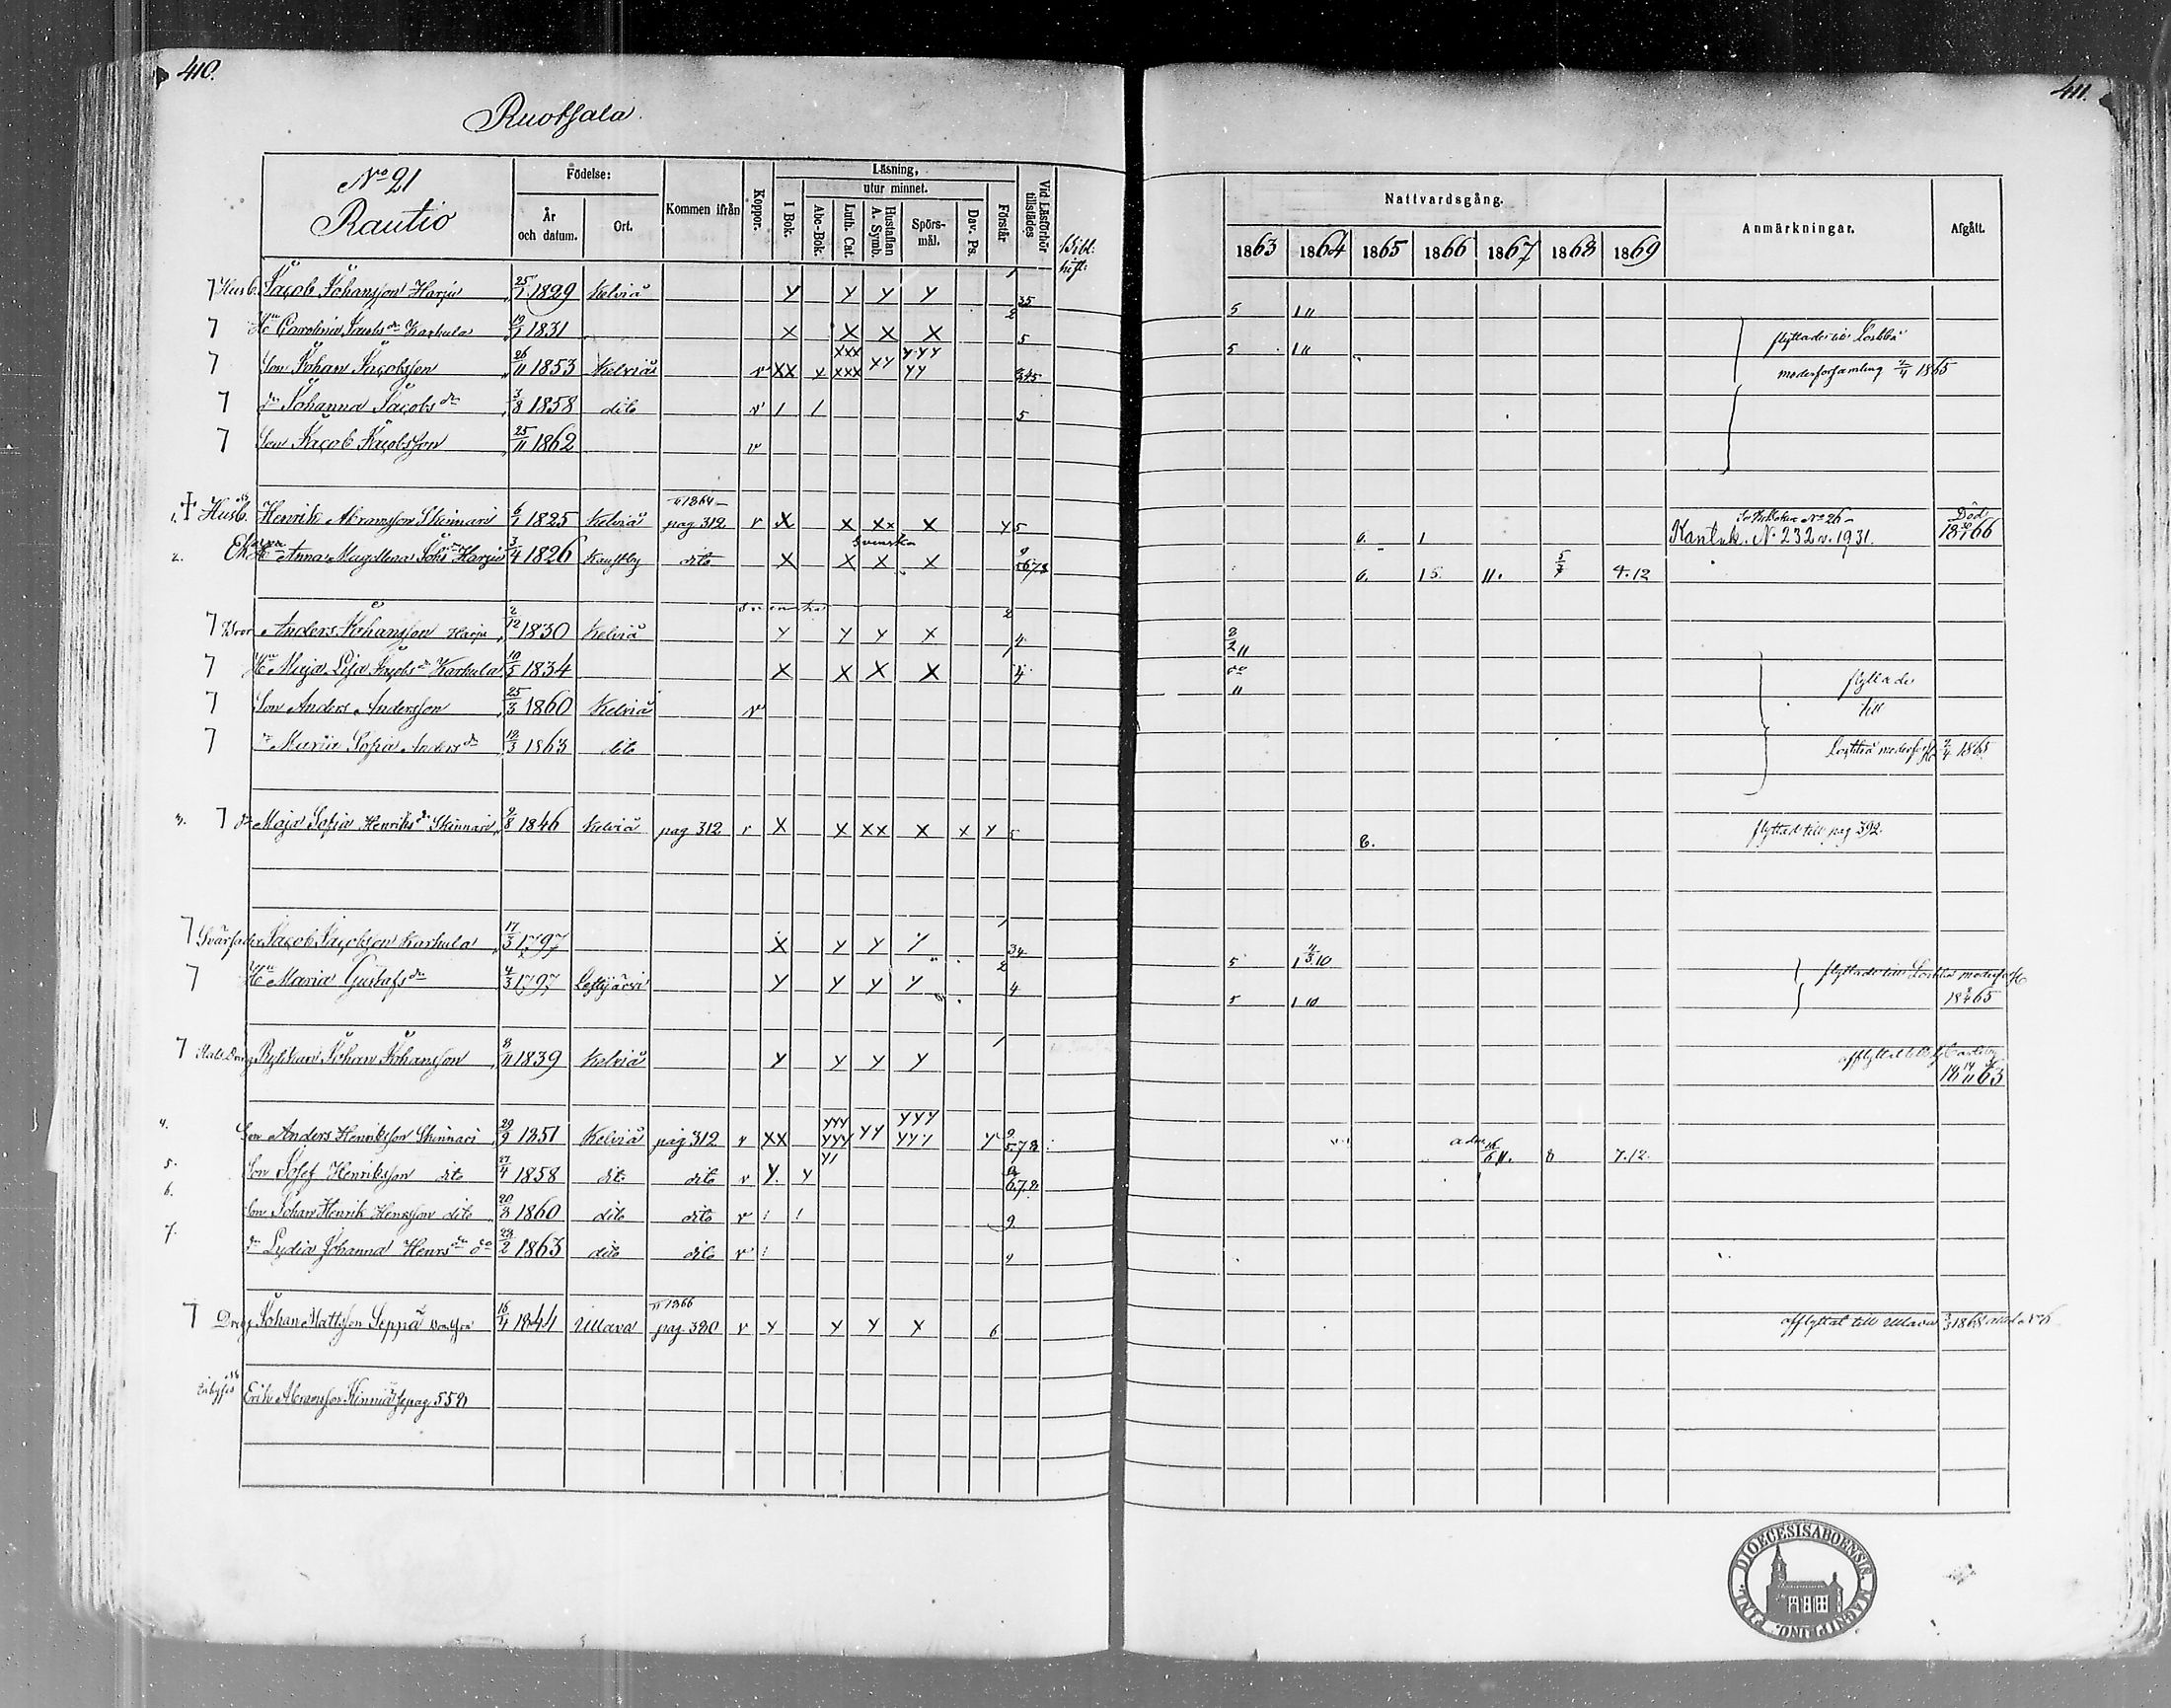 410.
Ruotsala
No 21
Rautio
Födelse:
År och datum.
Ort.
Kommen ifrån
Koppor.
Läsning,
utur minnet.
I Bok.
Abc-Bok.
Luth. Cat.
Hustaflan A. Symb.
Spörs-mål.
Dav. Ps.
Förstår
Vid Läsförhör tillstädes
7 Husb. Jacob Johansson Harju 25/1 1829 Kelviå y y y y 35
7 Hu Carolina Jacobsdr Karhula 19/1 1831 X X X X 5
7 Son Johan Jacobsson 26/11 1853 Kelviå v XX y xxx xxx yy yyy yy 345
7 dr Johanna Jacobsdr 3/8 1858 dito v 1 1 5
7 Son Jacob Jacobsson 25/11 1862 v
1. Husb. Henrik Abramsson Skinnari 6/1 1825 Kelviå 1864 pag 312 v X X Xx X y 5
2. Anna Magdlena Harju 3/4 1826 Kaustby dito X Svenska X X X 5678
7 Bror Anders Johansson Harju 2/12 1830 Kelviå y y y x 4
7 Hu Maja Lisa Jacobsdr Karhula 10/5 1834 X X X X 4
7 Son Anders Andersson 25/3 1860 Kelviå v
7 dr Maria Sofia Andersdr 12/3 1863 dito
3. 7 dr Maja Sofia Henriksdr Skinnari 9/8 1846 Kelviå pag 312 v X X XX X x y 5
7 Svärfader Jacob Jacobsson Karhula 17/3 1797 X y y y 34
7 Hu Maria Gustafsdr 4/3 1797 Lestijärvi y y y y 4
7 Johan Johansson 8/11 1839 Kelviå y y y y
4. Son Anders Henriksson Skinnari 29/9 1851 Kelviå pag 312 v XX yyy yyy yy yyy yyy y 578
5. Son Josef Henriksson dito 27/4 1858 dito dito v y. y y1 678
6. Son Johan Henrik Henrsson dito 20/8 1860 dito dito v 9
7. dr Lydia Johanna Henrsdr do 28/2 1863 dito dito v 9
7 Dreng Johan Mattsson Seppä 16/4 1844 Ullava 1866 pag 380 v y y y x 6
Erik Abramsson Skinnari se pag 558
411.
Nattvardsgång.
1863 1864 1865 1866 1867 1868 1869
Anmärkningar.
Afgått.
5 1 11
5 1 11
flyttade till Lochteå
moderförsamling 2/4 1865
6. 1 No 26 Kantuk. No 232 v. 1931. Död 18 30/1 66
6. 1 5. 11. 5/7 4.12
2/2 11
do
11
flyttade
till
Lochteå moderförs. 2/4 1865
6. flyttad till pag 392.
5 1 11/3 10
5 1 10
flyttade till Lochteå moderförs.
1865
18 14/11 63
16/6 11. 8 7.12.
afflyttat till Ullava 1868
DIOECESIS ABOENSIS. MAGNI PRINC. FINL.